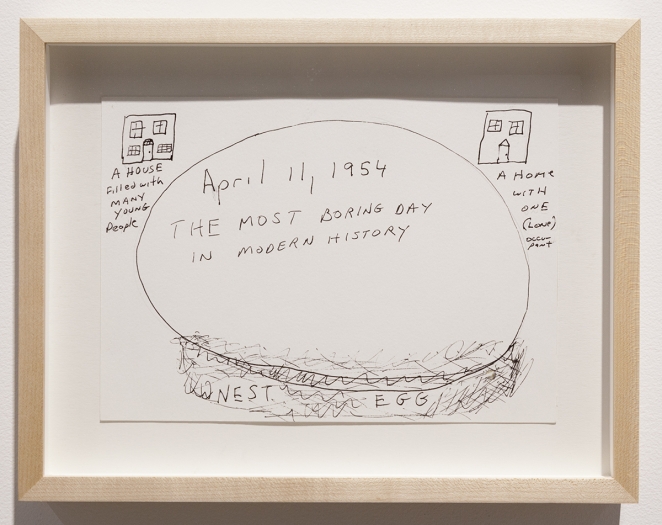 A HOUSE
Filled with
MANY
YOUNG
People
April 11, 1954
THE MOST BORING DAY
IN MODERN HISTORY
A HOME
WITH
ONE
(LONE)
OCCU
PANT
NEST EGG